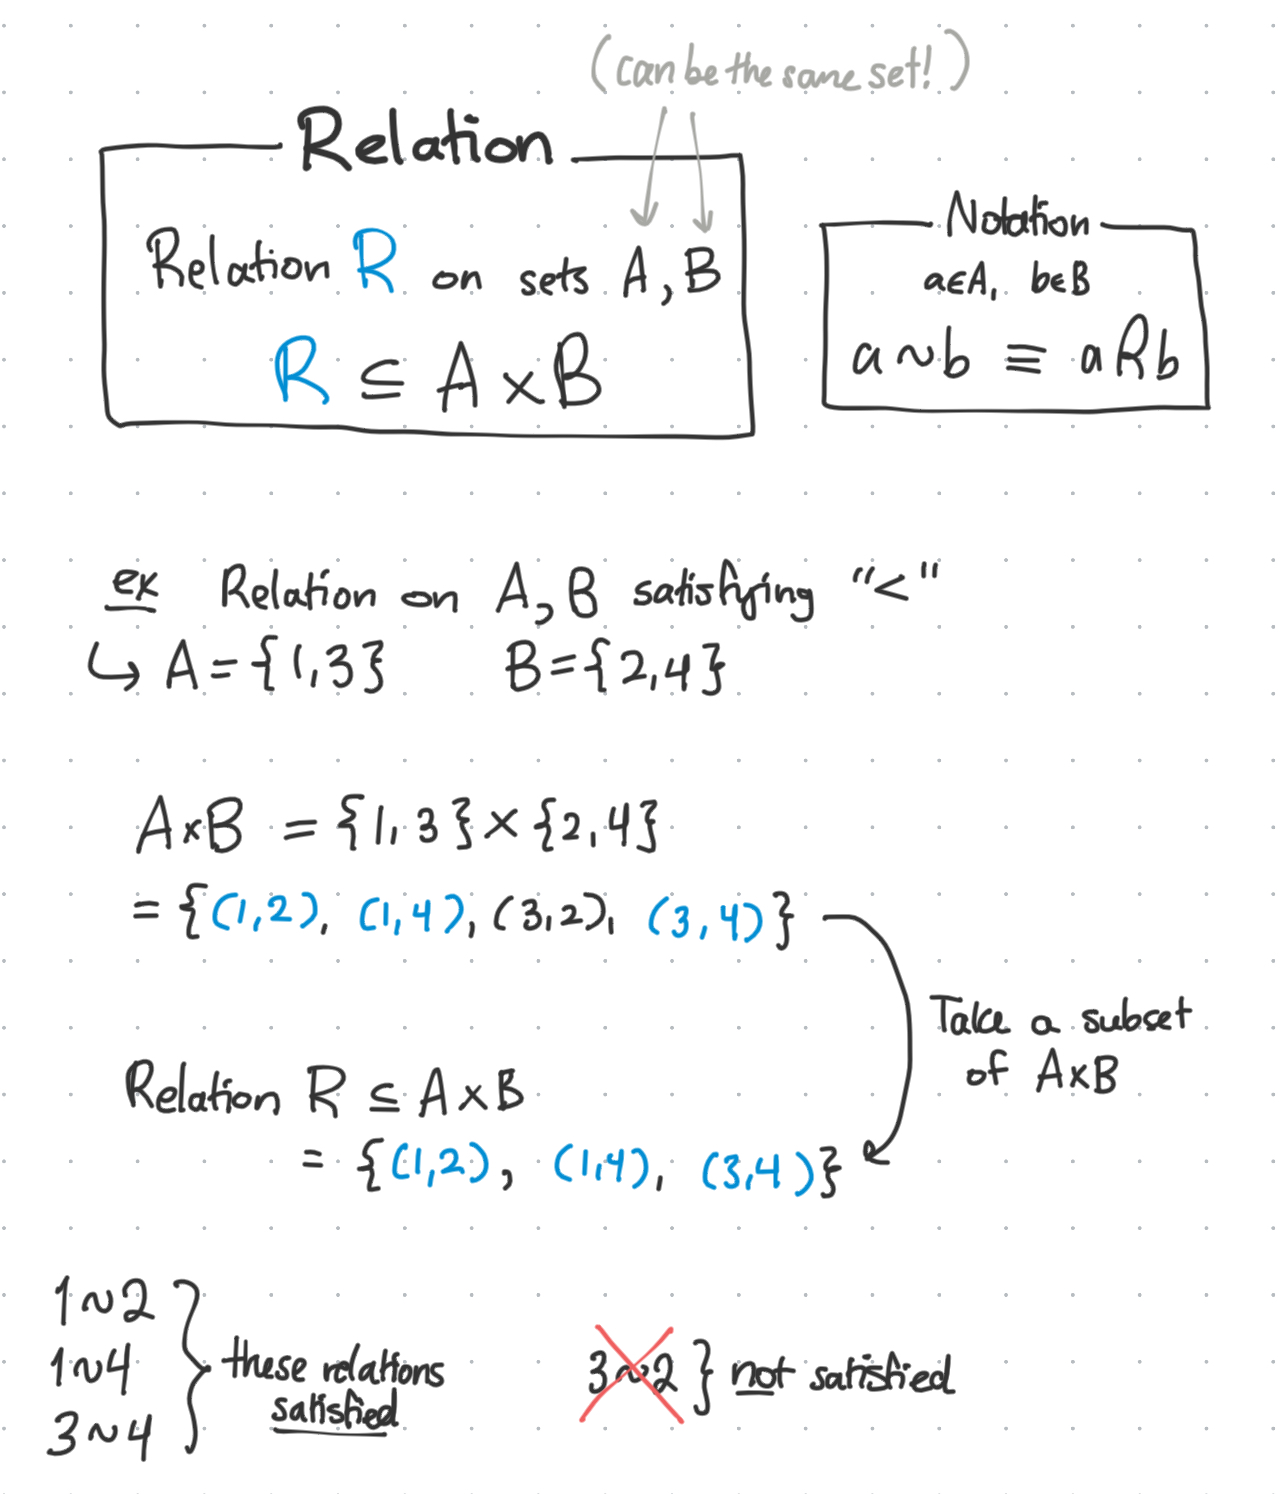 (can be the same set!)
Relation
Relation R on sets A, B
R ⊆ A × B
Notation
a∈A, b∈B
a ~ b ≡ a R b
ex Relation on A, B satisfying "<"
↳ A = {1,3} B = {2,4}
A×B = {1,3} × {2,4}
= {(1,2), (1,4), (3,2), (3,4)}
Take a subset
of A×B
Relation R ⊆ A×B
= {(1,2), (1,4), (3,4)}
1~2
1~4
3~4
} these relations
satisfied
3~2 } not satisfied